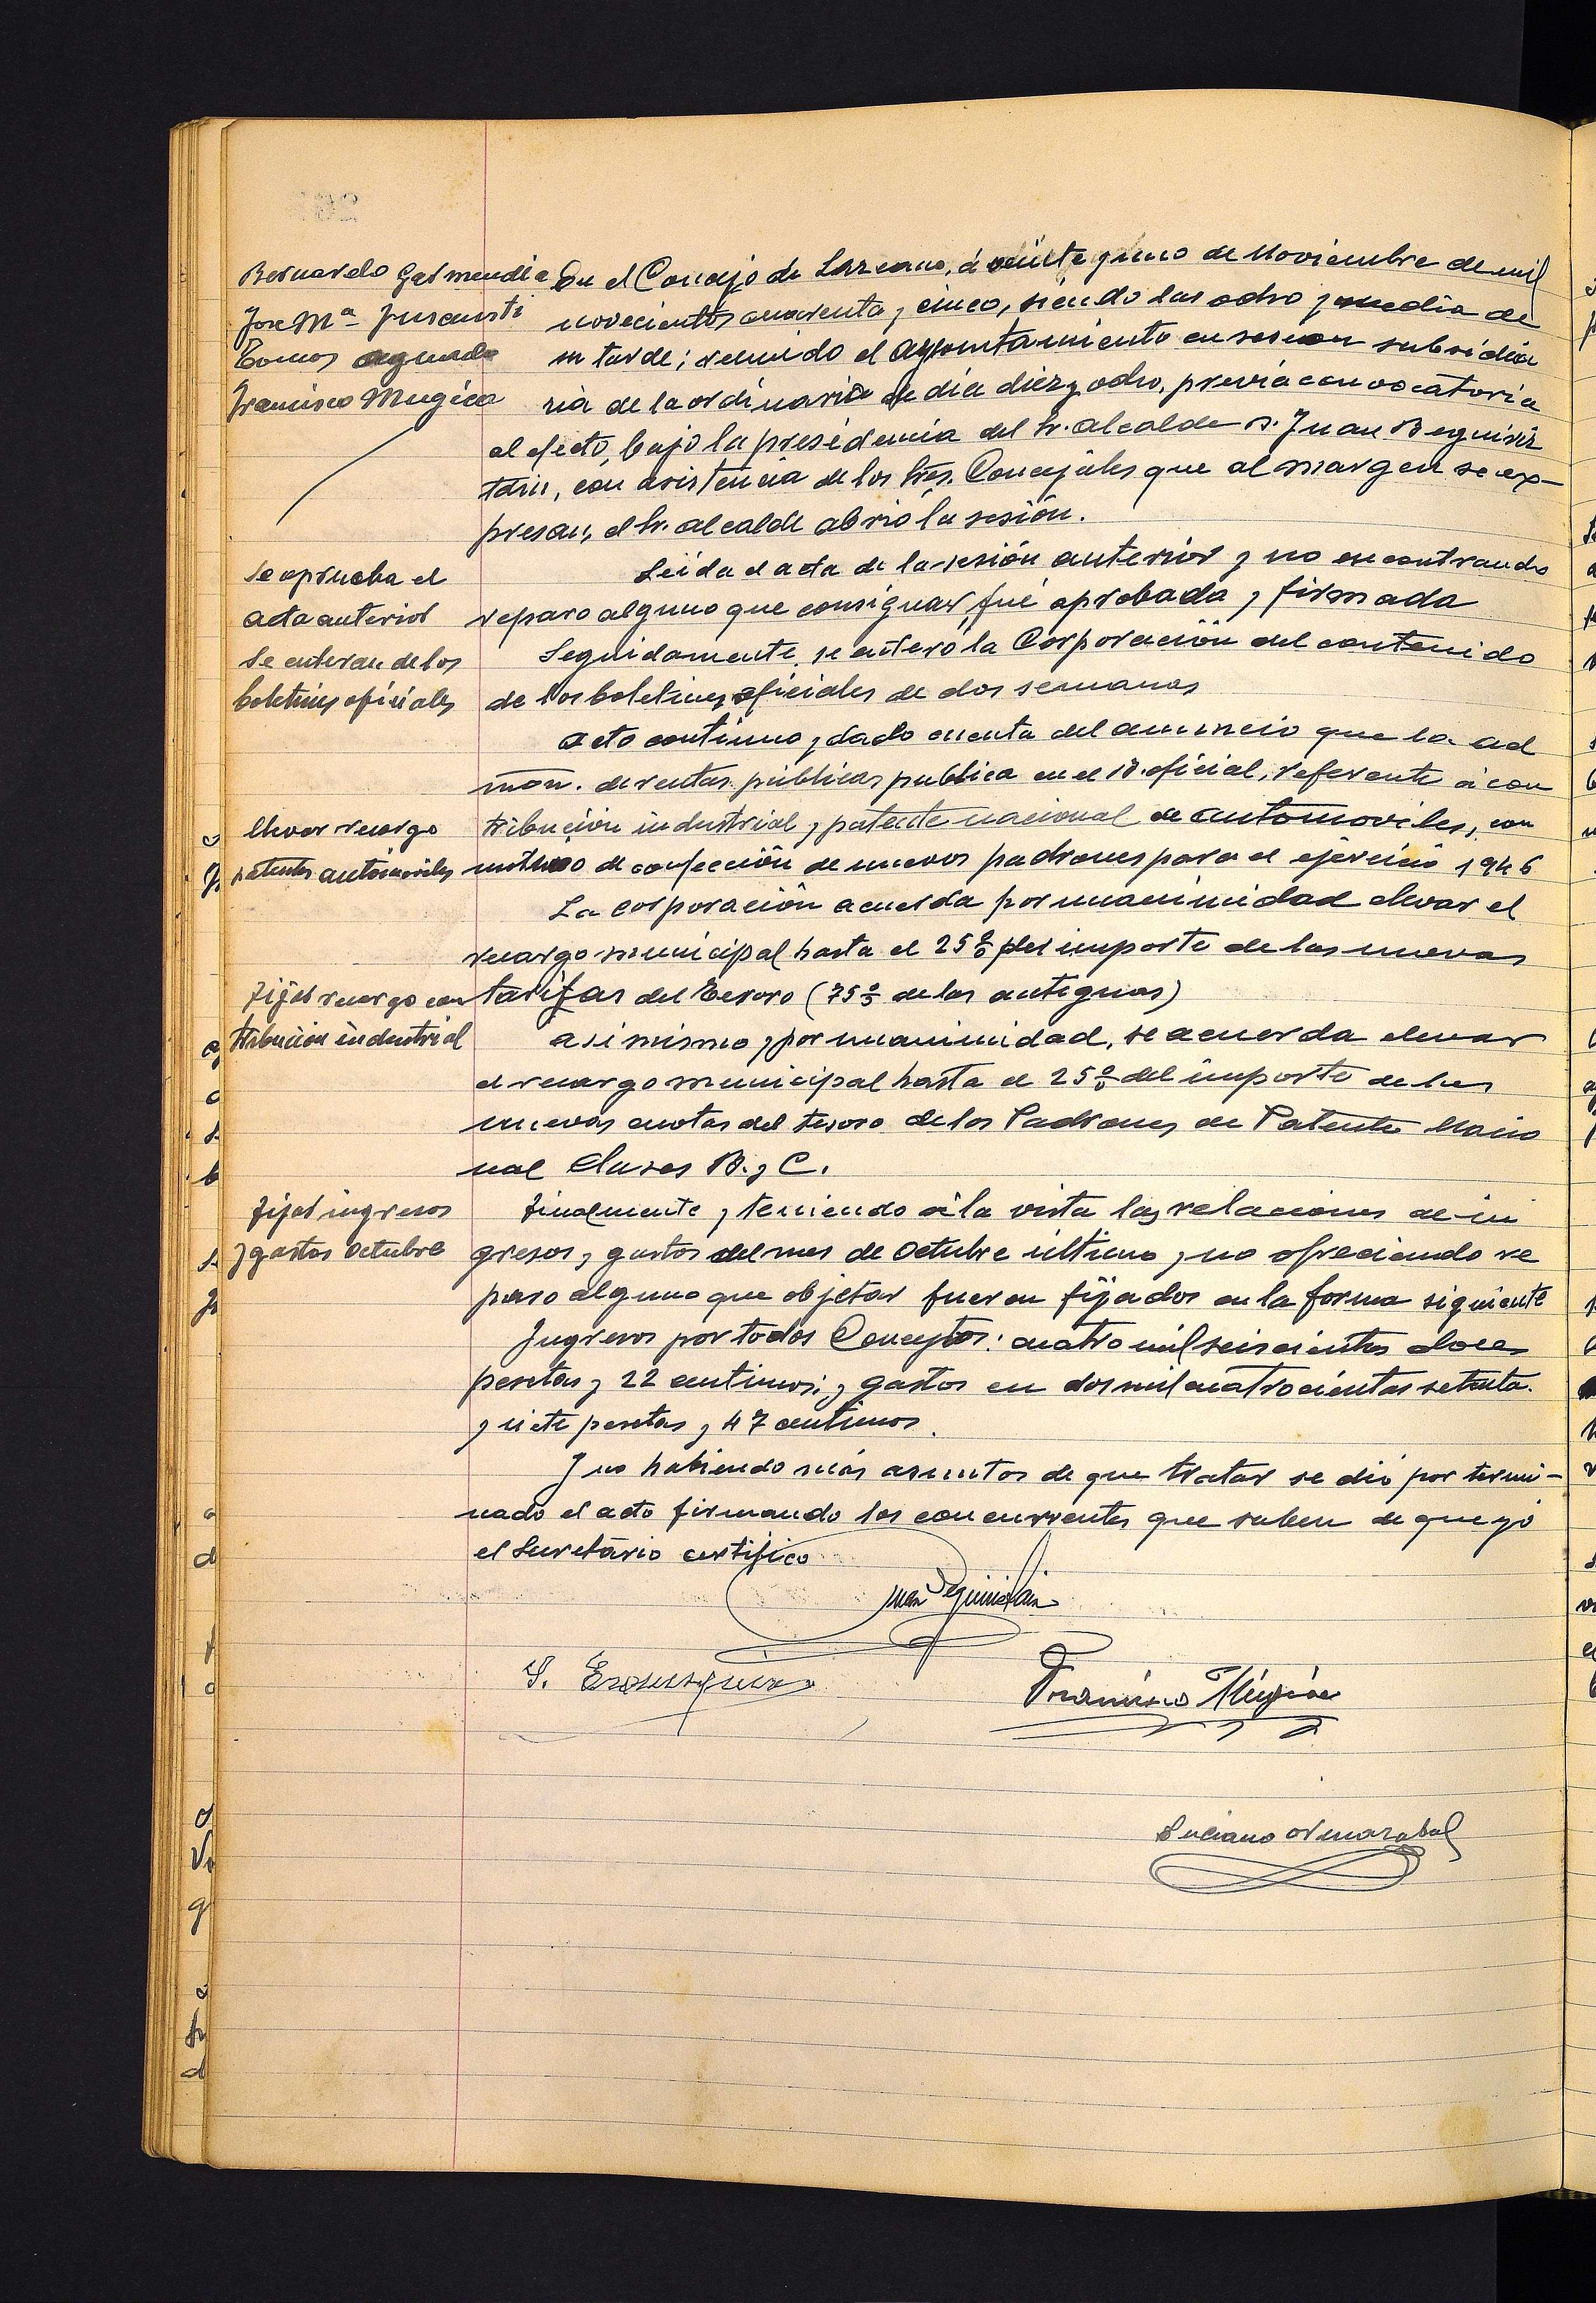 Bernardo Garmendia
Jose Mª Insausti
Tomas Aguado
Francisco Mugica
En el Concejo de Lazcano, á veinte y uno de Noviembre de mil
novecientos cuarenta y cinco, siendo las ocho y media de
su tarde; reunido el Ayuntamiento en sesion subsidia
ria de la ordinaria de dia diez y ocho, previa convocatoria
al efecto, bajo la presidencia del Sr. Alcalde D. Juan Beguiriz
tain, con asistencia de los Sres. Concejales que al margen se ex-
presan, el Sr. Alcalde abrió la sesión.
Se aprueba el
acta anterior
Leida el acta de la sesión anterior y no encontrando
reparo alguno que consignar, fué aprobada y firmada
Se enteran de los
boletines oficiales
Seguidamente se enteró la Corporación del contenido
de los boletines oficiales de dos semanas
Acto continuo y dado cuenta del anuncio que la ad
món. de rentas públicas publica en el B. oficial, referente á con
Elevar recargo
patentes automoviles
tribución industrial y patente nacional de automoviles, con
motivo de confección de nuevos padrones para el ejercicio 1946
La corporación acuerda por unanimidad elevar el
recargo municipal hasta el 25% del importe de las nuevas
Fijar recargo con
tribución industrial
tarifas del Tesoro (75% de las antiguas)
Asi mismo y por unanimidad, se acuerda elevar
el recargo municipal hasta el 25% del importe de las
nuevas cuotas del tesoro de los Padrones de Patente Nacio
nal Clases B. y C.
Fijar ingresos
y gastos Octubre
Finalmente y teniendo á la vista las relaciones de in
gresos y gastos del mes de Octubre último y no ofreciendo re
paro alguno que objetar fueron fijados en la forma siguiente
Ingresos por todos Conceptos: cuatro mil seiscientas doce
pesetas y 22 centimos; y gastos en dos mil cuatrocientas setenta
y siete pesetas y 47 centimos.
Y no habiendo más asuntos de que tratar se dió por termi-
nado el acto firmando los concurrentes que saben de que yo
el Secretario certifico
Juan Beguiristain
Francisco Mugica
Luciano Ormazabal